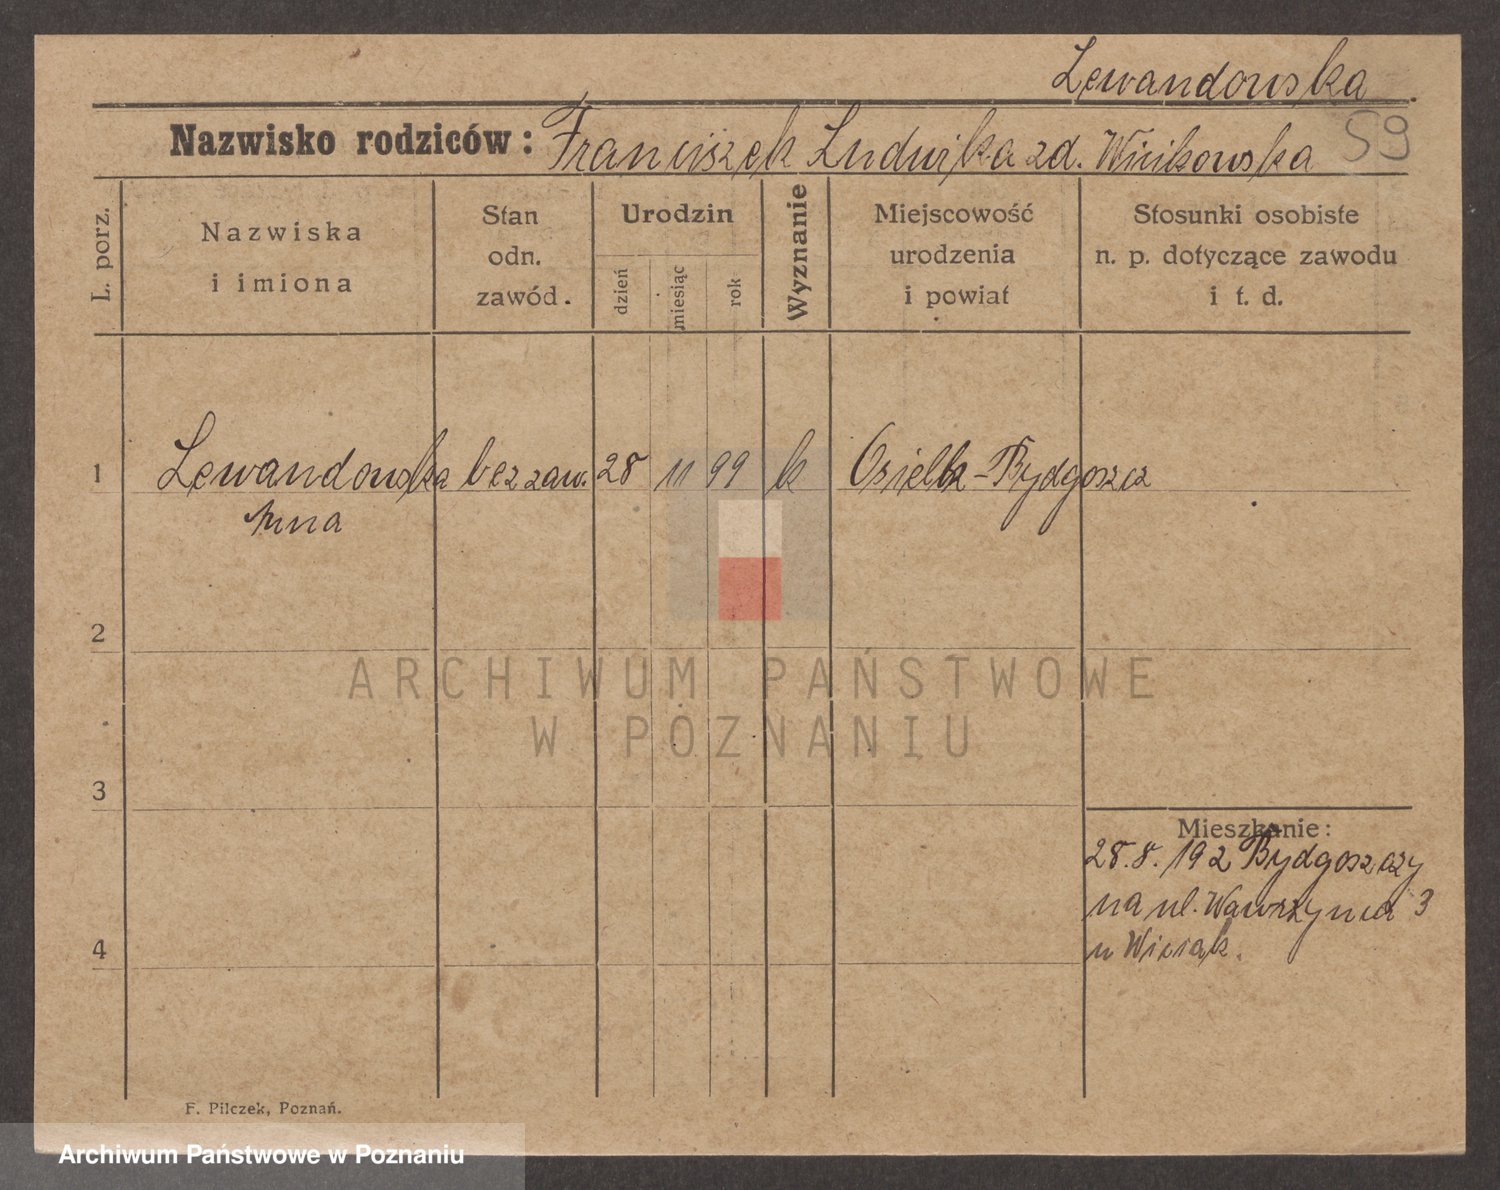 Lewandowska
Nazwisko rodziców: Franciszek Ludwika zd. Wicikowska
59
L. porz.
Nazwiska
i imiona
Stan
odn.
zawód.
Urodzin
dzień
miesiąc
rok
Wyznanie
Miejscowość
urodzenia
i powiat
Stosunki osobiste
n. p. dotyczące zawodu
i t. d.
1 Lewandowska bez zaw. 28 11 99 k Osielsk-Bydgoszcz
Anna
2
3
4
Mieszkanie:
28.8. 19 z Bydgoszczy
na ul. Wawrzynca 3
u
F. Pilczek, Poznań.
ARCHIWUM PAŃSTWOWE
W POZNANIU
Archiwum Państwowe w Poznaniu